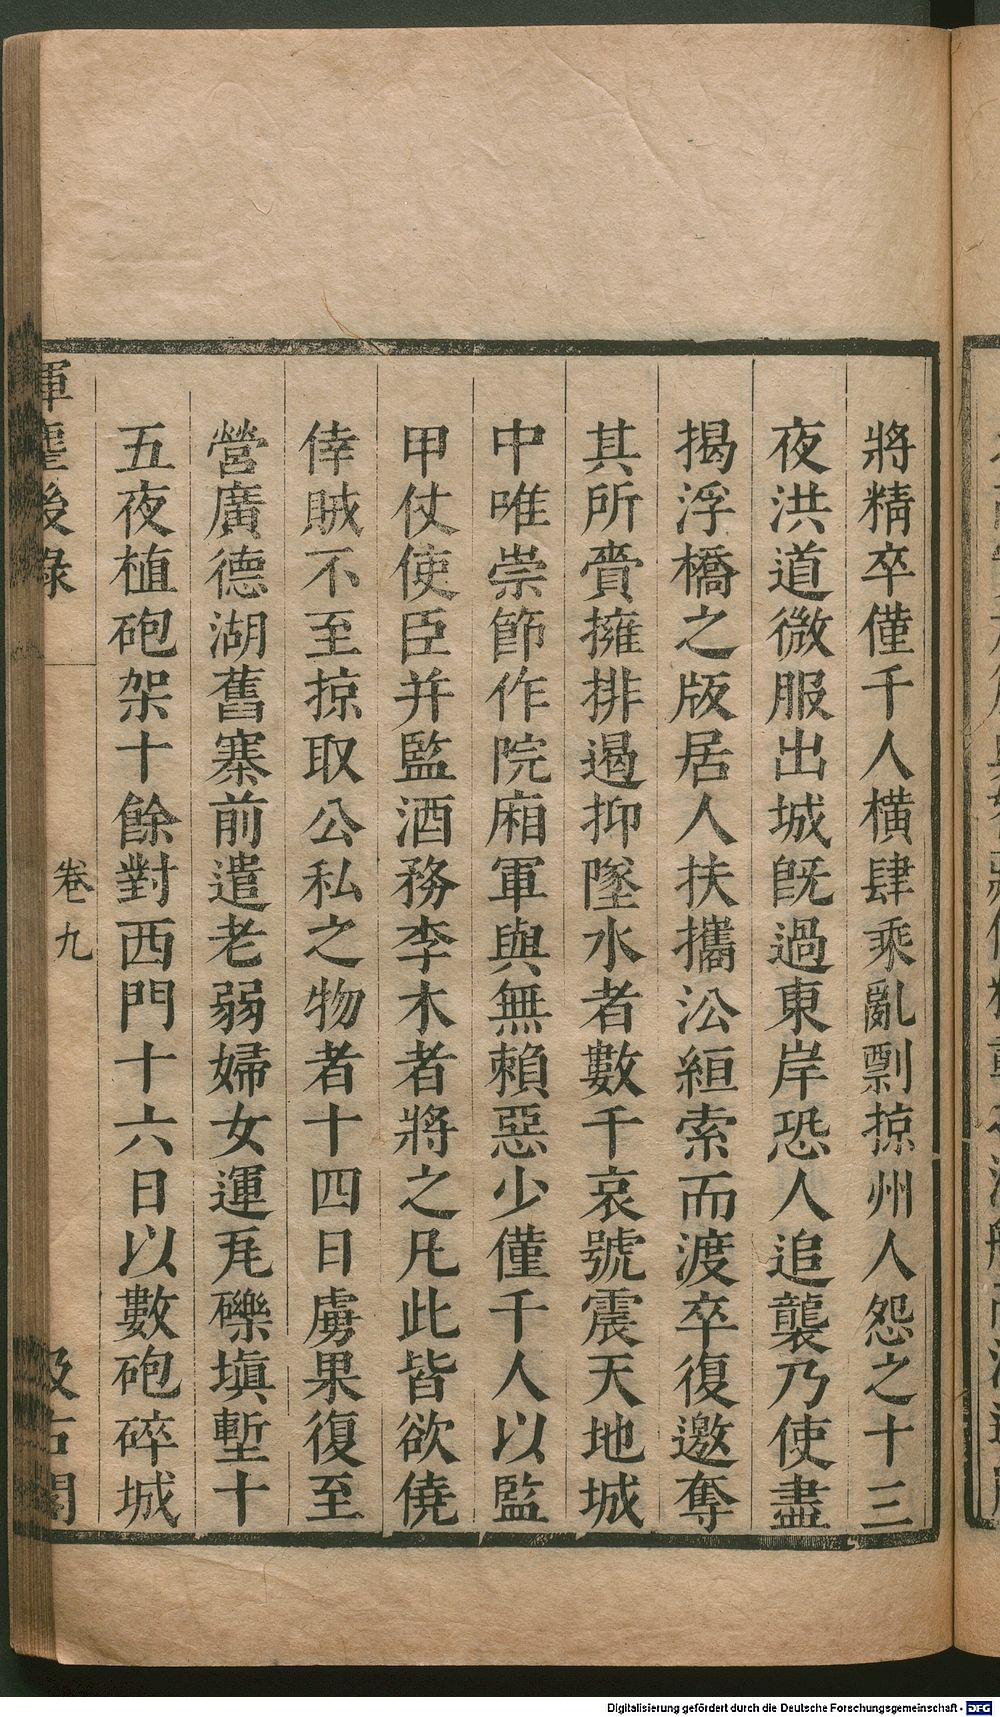 將精卒僅千人橫肆乘亂剽掠州人怨之十三
夜洪道微服出城旣過東岸恐人追襲乃使盡
揭浮橋之版居人扶攜㳂絙索而渡卒復邀奪
其所賫擁排遏抑墜水者數千哀號震天地城
中唯崇節作院廂軍與無賴惡少僅千人以監
甲仗使臣并監酒務李木者將之凡此皆欲僥
倖賊不至掠取公私之物者十四日虜果復至
營廣德湖舊寨前遣老弱婦女運瓦礫塡塹十
五夜植砲架十餘對西門十六日以數砲碎城
揮麈後錄
卷九
汲古閣
Digitalisierung gefördert durch die Deutsche Forschungsgemeinschaft - DFG